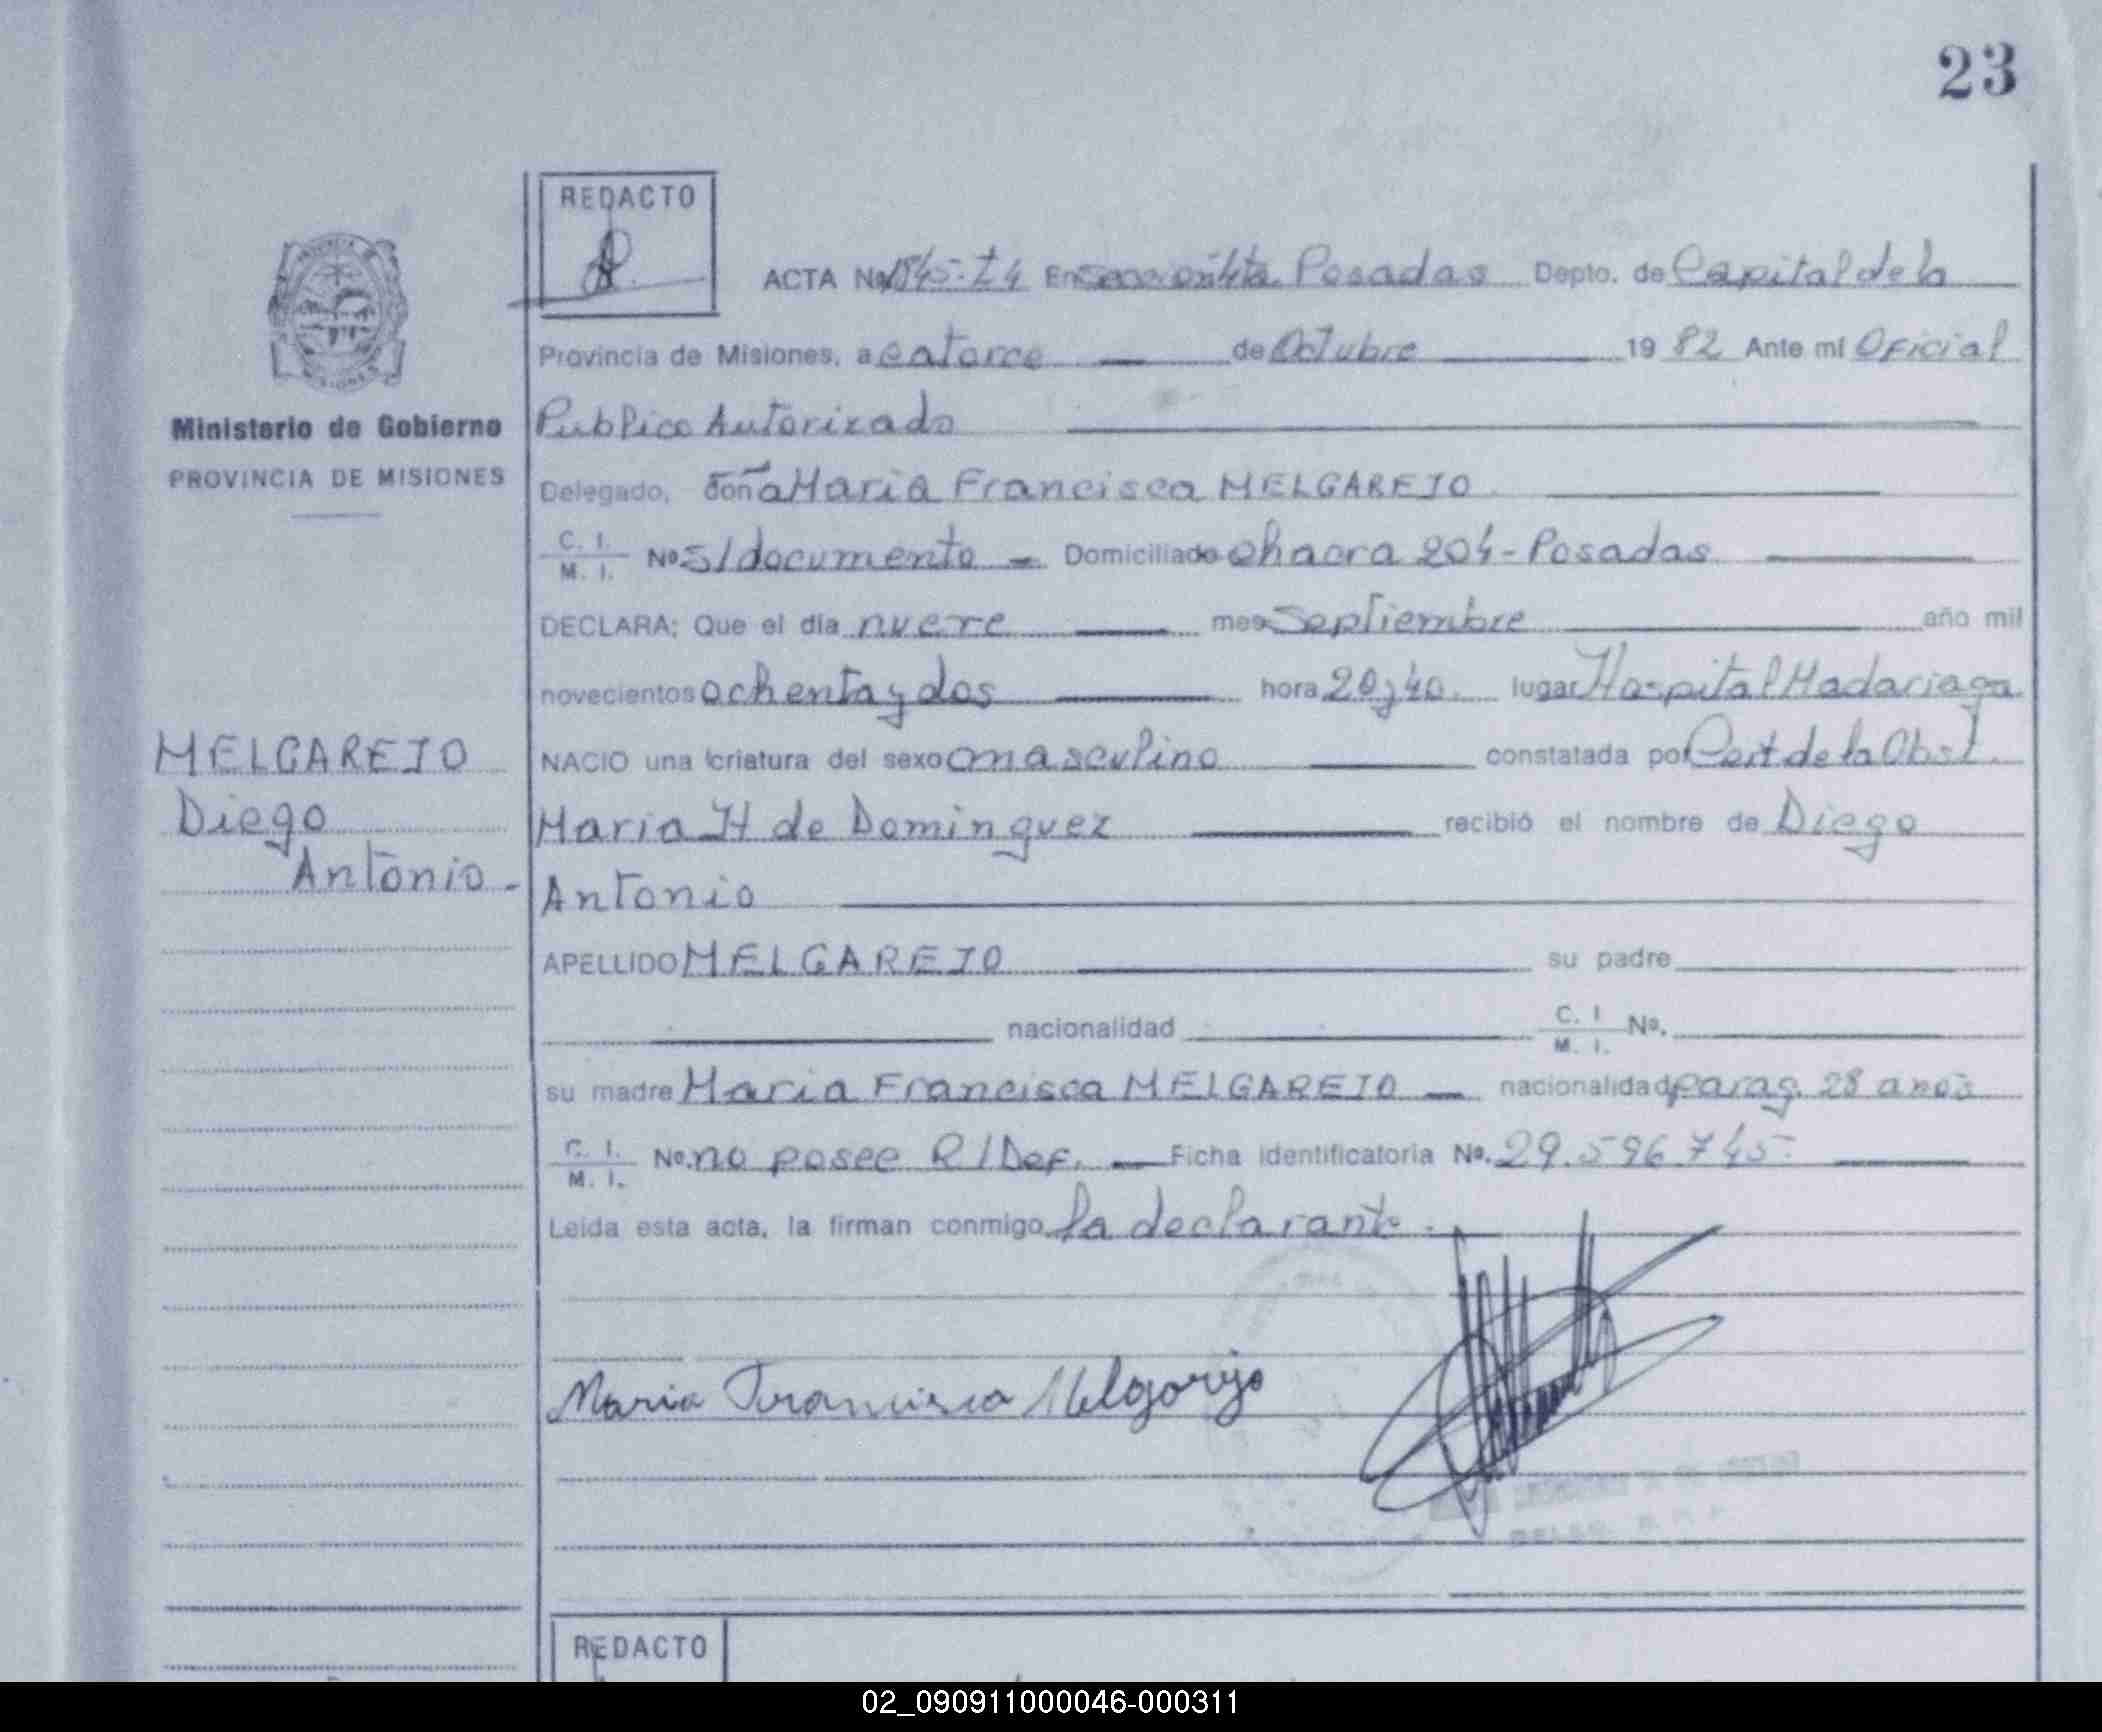 23
REDACTO
ACTA No 1845-t4 En Sección 4ta. Posadas Depto. de Capital de la
Provincia de Misiones, a catorce de Octubre 19 82 Ante mi Oficial
Ministerio de Gobierno
PROVINCIA DE MISIONES
Publico Autorizado
Delegado, doña Maria Francisca MELGAREJO
C. I.
M. I. No s/documento - Domiciliado chacra 204 - Posadas
DECLARA; Que el día nueve mes Septiembre año mil
novecientos ochenta y dos hora 20 y 40. lugar Hospital Madariaga
MELGAREJO
Diego
Antonio -
NACIO una criatura del sexo masculino constatada por Cert de la Obst.
Maria H de Dominguez recibió el nombre de Diego
Antonio
APELLIDO MELGAREJO su padre
nacionalidad C. I
M. I. No.
su madre Maria Francisca MELGAREJO - nacionalidad parag. 28 anos
C. I.
M. I. No. no posee R/Def. - Ficha identificatoria No. 29.596.745-
Leída esta acta, la firman conmigo la declarante.
Maria Francisca Melgarejo
REDACTO
02_090911000046-000311